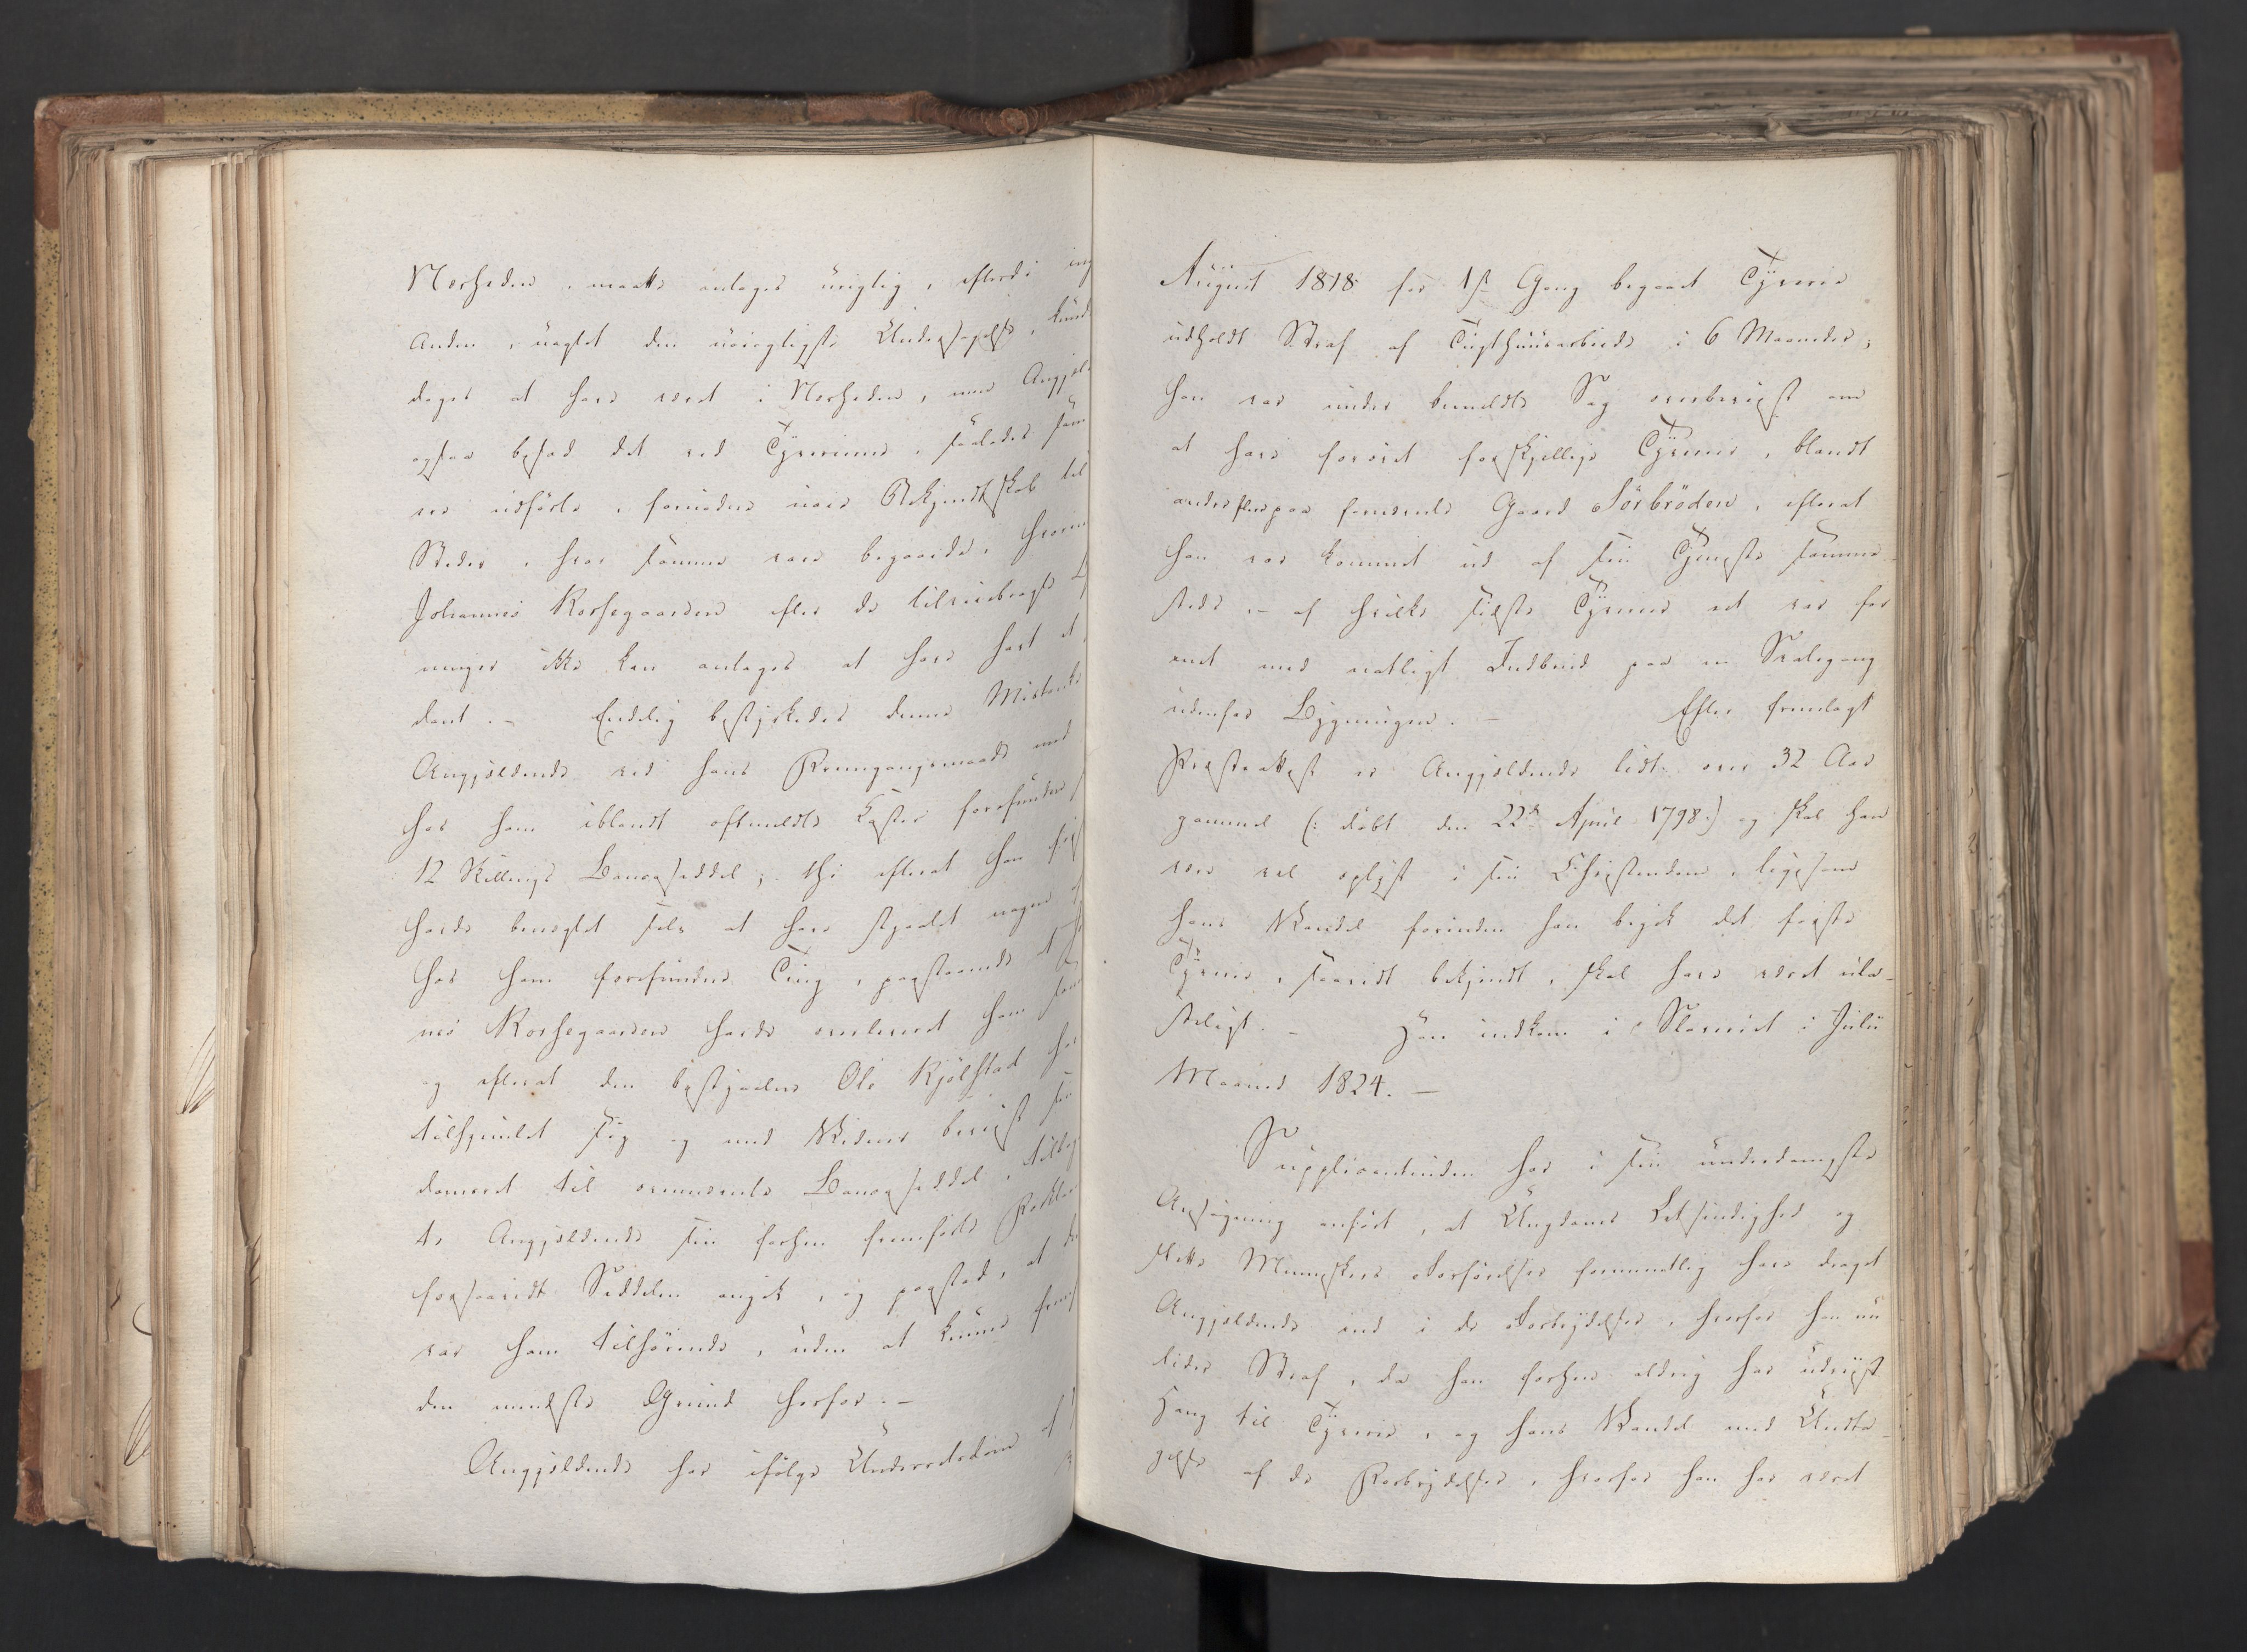 Nærheden, maatte antages urigtig, efterdi ing
Anden, uagtet den nøiagtigste Undersøgelse, kund
dages at have været i Nærheden, men Angjæl
ogsaa bestod det ved Tyverierne, saaledes som
ere udførte, fornødne nøie Bekjendtskab til
Steder, hvor samme vare begaaede, hvorim
Johannes Korsegaarden efter de tilveiebragte
ninger ikke kan antages at have havt et
dant. – Endelig bestyrkedes denne Mistanke
Angjældende ved hans Fremgangsmaade med
hos ham iblandt oftmeldte Koster forefundne
12 Skillings Bancoseddel; thi efterat han først
havde benegtet selv at have stjaalet nogen af
hos ham forefundne Ting, paastaaende at Jo
nes Korsegaarden havde overleveret ham sam
og efterat den bestjaalne Ole Kjølstad hav
tilhjemlet sig og med Vidner beviist sin
domsret til ovennævnte Bancoseddel, tilbag
te Angjældende sin forhen fremførte Forklar
forsaavidt Seddelen angik, og paastod, at de
var ham tilhørende, uden at kunne frem
den mindste Grund herfor. –
Angjældende har ifølge Underretsdom af
August 1818 for 1ste Gang begaaet Tyverie
udholdt Straf af Tugthuusarbeide i 6 Maaneder;
han var under bemeldte Sag overbeviist om
at have forøvet forskjellige Tyverier, blandt
andet paa fornævnte Gaard Sörbröden, efterat
han var kommet ud af sin Tjeneste samme-
steds, – af hvilke sidste Tyverier et var for
øvet med natligt Indbrud paa en Svalegang
udenfor Bygningen. – Efter fremlagt
Præsteattest er Angjældende lidt over 32 Aar
gammel (: døbt den 22de April 1798:) og skal han
være vel oplyst i sin Christendom, ligesom
hans Vandel forinden han begik det første
Tyverie, saavidt bekjendt, skal have været ula-
steligt. – Han indkom i Slaveriet i Julii
Maaned 1824. –
Supplicantinden har i sin underdanigste
Ansøgning anført, at Ungdoms Letsindighed og
slette Menneskers Forførelser formeentlig have draget
Angjældende ind i de Forbrydelser, hvorfor han nu
lider Straf, da han forhen aldrig har udviist
Hang til Tyverie, og hans Vandel med Undta-
gelse af de Forbrydelser, hvorfor han har været